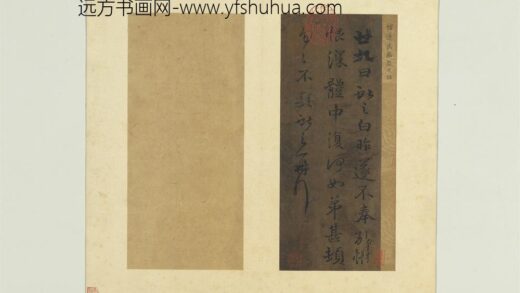 远方书画网-www.yfshuhua.com
廿九日獻之白昨遂不奉別悵
恨深體中復何如弟甚頓
匆匆不具獻之再拜